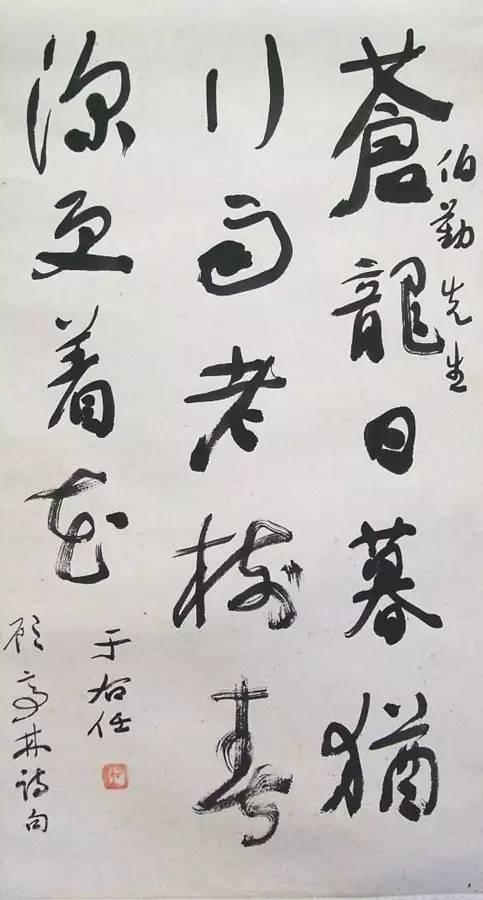 伯勤先生
蒼龍日暮猶
行雨老樹春
深更着花
于右任
顧亭林詩句